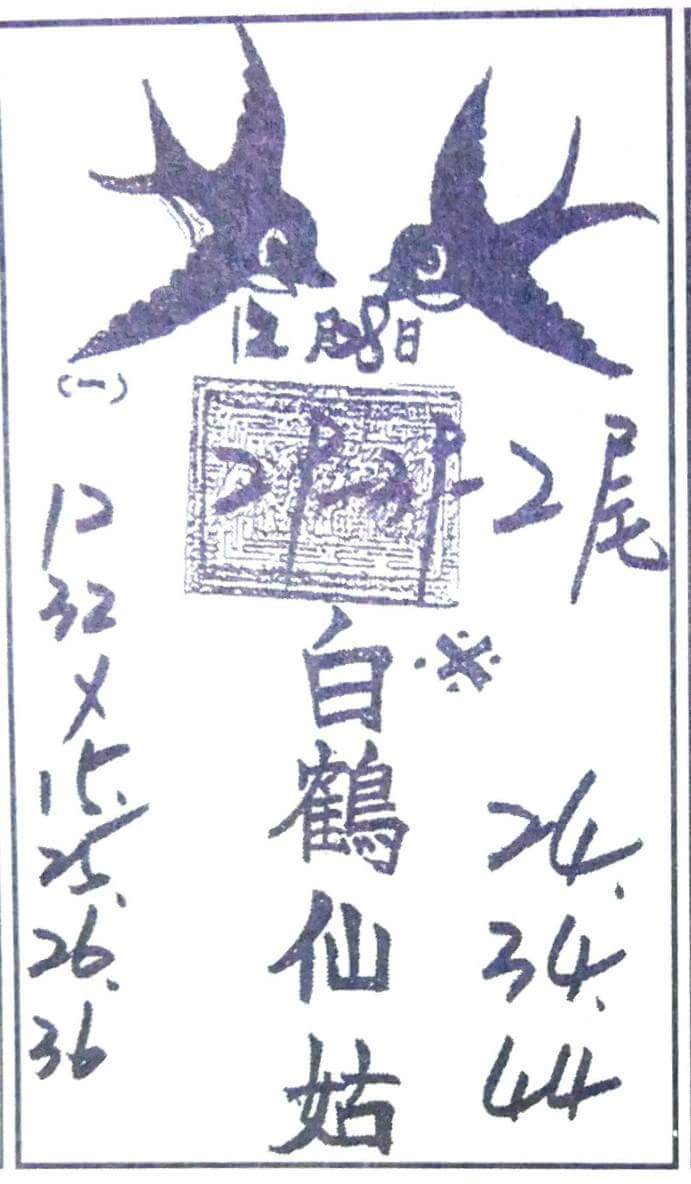 12月28日
(一)
2尾
12
32
X
15.
25.
26.
36
※
白鶴仙姑
24.
34.
44